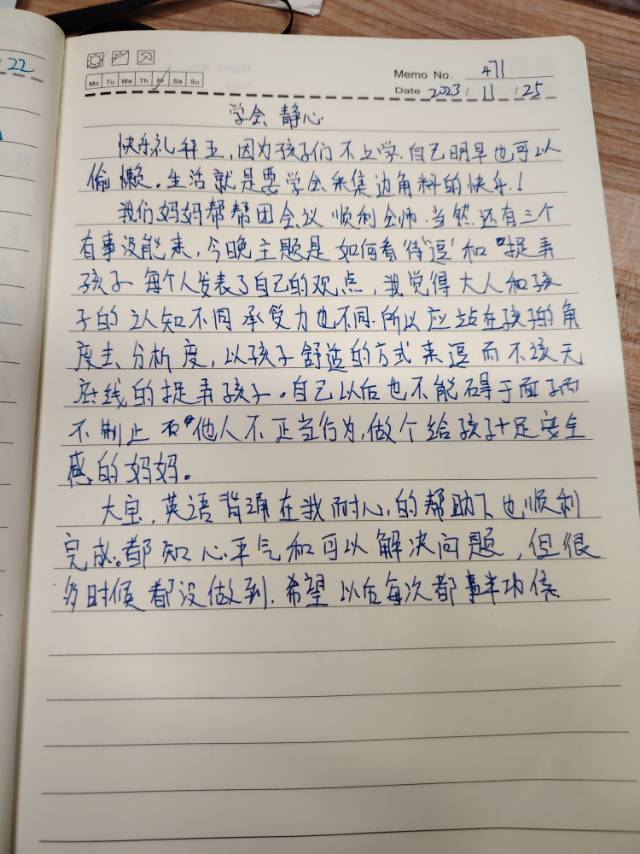 22
Mo Tu We Th Fr Sa Su
Memo No. 471
Date 2023 / 11 / 25
学会静心
快乐礼拜五,因为孩子们不上学.自己明早也可以
偷懒。生活就是要学会采集边角料的快乐!
我们妈妈帮帮团会议顺利会师.当然还有三个
有事没能来,今晚主题是如何看待"逗"和"捉弄
孩子.每个人发表了自己的观点,我觉得大人和孩
子的认知不同承受力也不同.所以应站在孩子的角
度去分析度,以孩子舒适的方式来逗而不该无
底线的捉弄孩子。自己以后也不能碍于面子而
不制止 他人不正当行为,做个给孩子十足安全
感的妈妈。
大宝.英语背诵在我耐心的帮助下也顺利
完成。都知心平气和可以解决问题,但很
多时候都没做到.希望以后每次都事半功倍